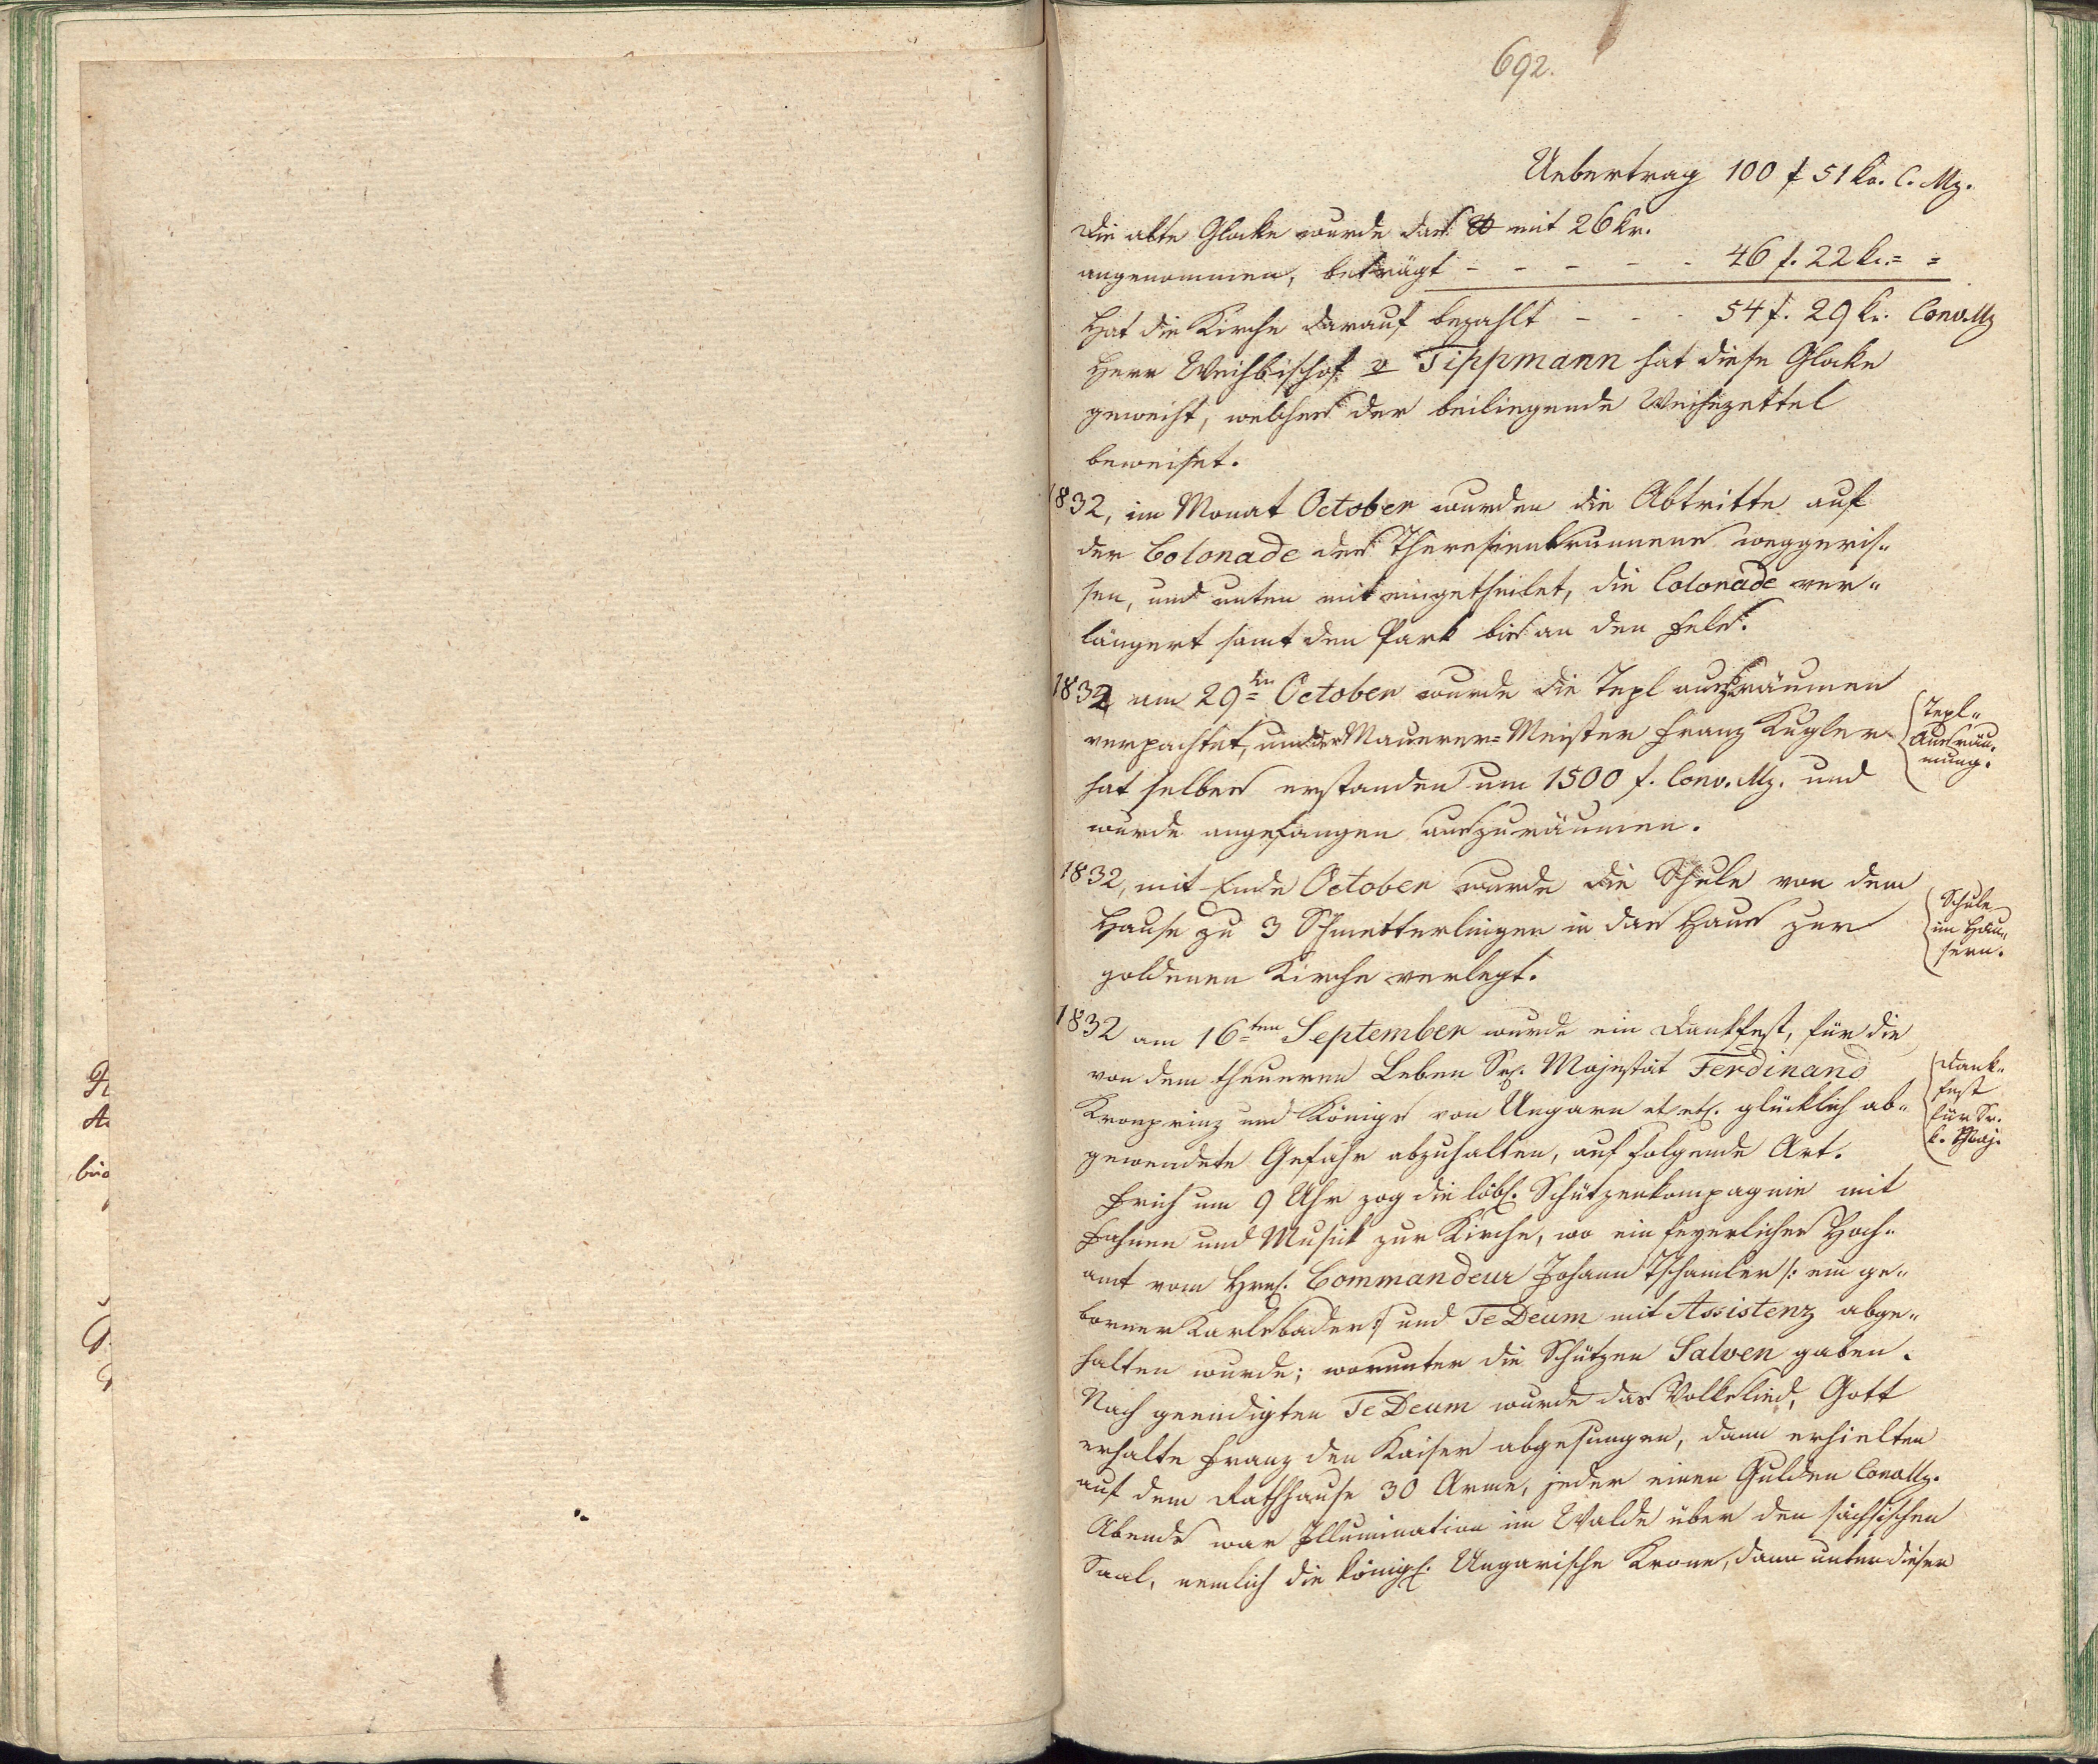 692.
Uebertrag 100 f 51 kr. C. Mz.
Die alte Glocke wurde das ℔ mit 26 kr.
angenommen, beträgt - - - - - 46 f. 22 kr. = =
Hat die Kirche darauf bezahlt - - - 54 f. 29 kr. Conv. Mz
Herr Weihbischof v Tippmann hat diese Glocke
geweiht, welches der beiliegende Weihezettel
beweiset.
1832, im Monat October wurden die Abtritte auf
der Colonade des Theresienbrunnens weggeris„
sen, und unten mit eingetheilet, die Colonade ver„
längert samt den Park bis an den Fels.
1832 am 29ten October wurde die Tepl auszuräumen
verpachtet, und der Maurer=Meister Franz Kugler
hat selbes erstanden um 1500 f. Conv. Mz. und
wurde angefangen auszuräumen.
Tepl„
Ausräu„
mung.
1832, mit Ende October wurde die Schule von dem
Hause zu 3 Schmetterlingen in das Haus zur
goldenen Kirche verlegt.
Schule
im Häu„
sern.
1832 am 16ten September wurde ein Dankfest, für die
von dem theueren Leben Sr. Majestät Ferdinand
Kronprinz und Königs von Ungarn et etc. glücklich ab„
gewendete Gefahr abzuhalten, auf folgende Art.
Dank„
fest
für Sr.
k. Maj.
Früh um 9 Uhr zog die löbl. Schützenkompagnie mit
Fahnen und Musick zur Kirche, wo ein feyerliches Hoch„
amt vom Hrn. Commandeur Johann Tschamler /: ein ge„
borner Karlsbader :/ und Te Deum mit Assistenz abge„
halten wurde; worunter die Schützen Salven gaben.
Nach geendigten Te Deum wurde das Volkslied, Gott
erhalte Franz den Kaiser abgesungen, dann erhielten
auf dem Rathhause 30 Arme, jeder einen Gulden Conv Mz.
Abends war Illumination im Walde über den sächsischen
Saal, nemlich die königl. Ungarische Krone, dann unter dieser